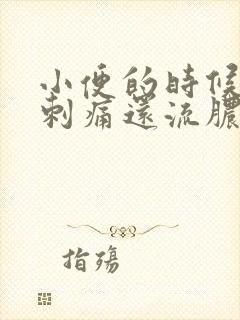 小便的時候
刺痛還流膿
指殤